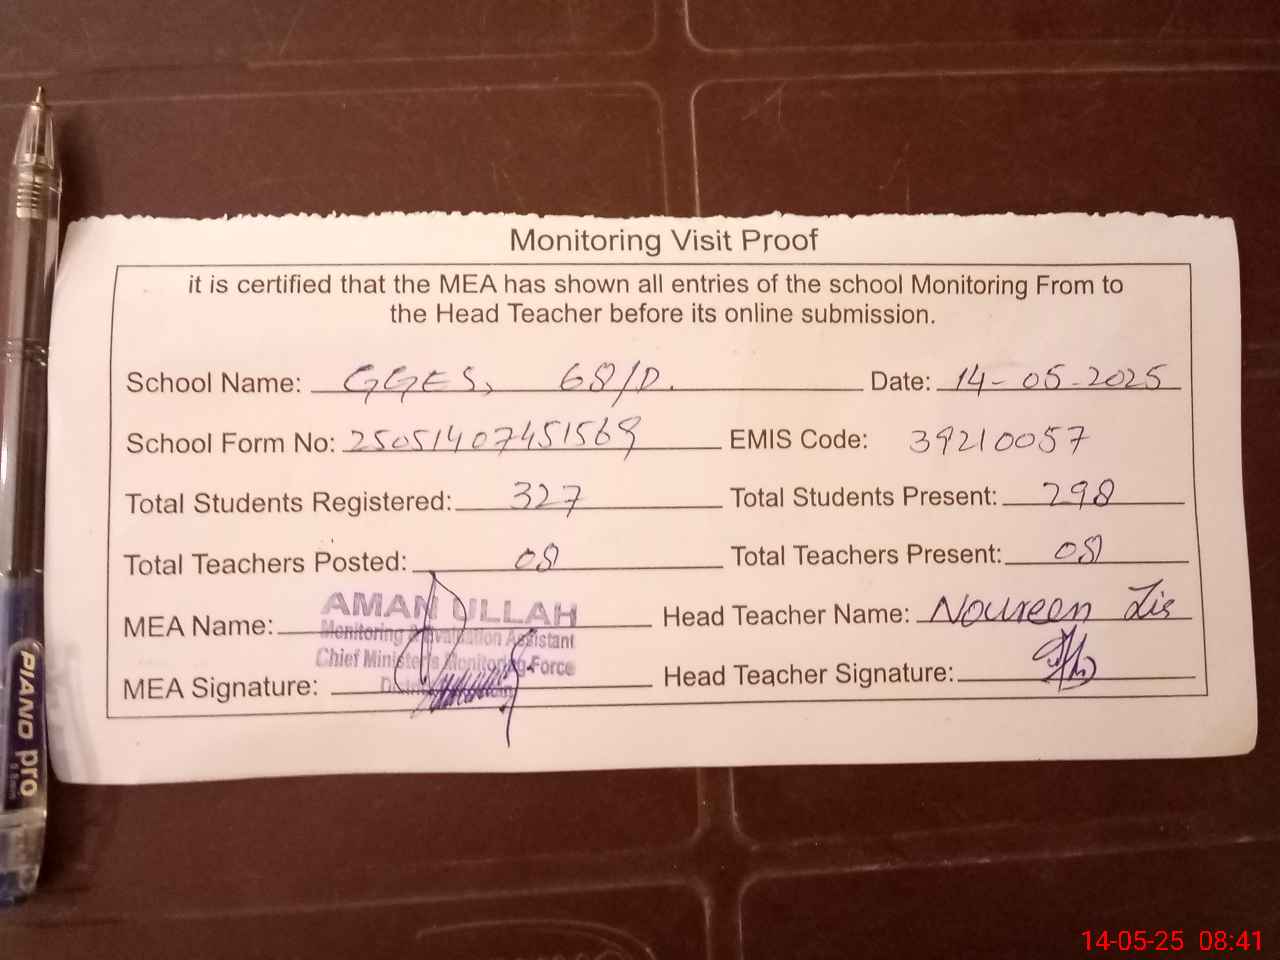 Monitoring Visit Proof
it is certified that the MEA has shown all entries of the school Monitoring From to
the Head Teacher before its online submission.
School Name: GGES, 68/D. Date: 14-05-2025
School Form No: 25051407451569 EMIS Code: 39210057
Total Students Registered: 327 Total Students Present: 298
Total Teachers Posted: 08 Total Teachers Present: 08
MEA Name: AMAN ULLAH Head Teacher Name: Noureen
Monitoring & Evaluation Assistant
Chief Minister's Monitoring Force
MEA Signature: Head Teacher Signature:
PIANO pro
14-05-25 08:41